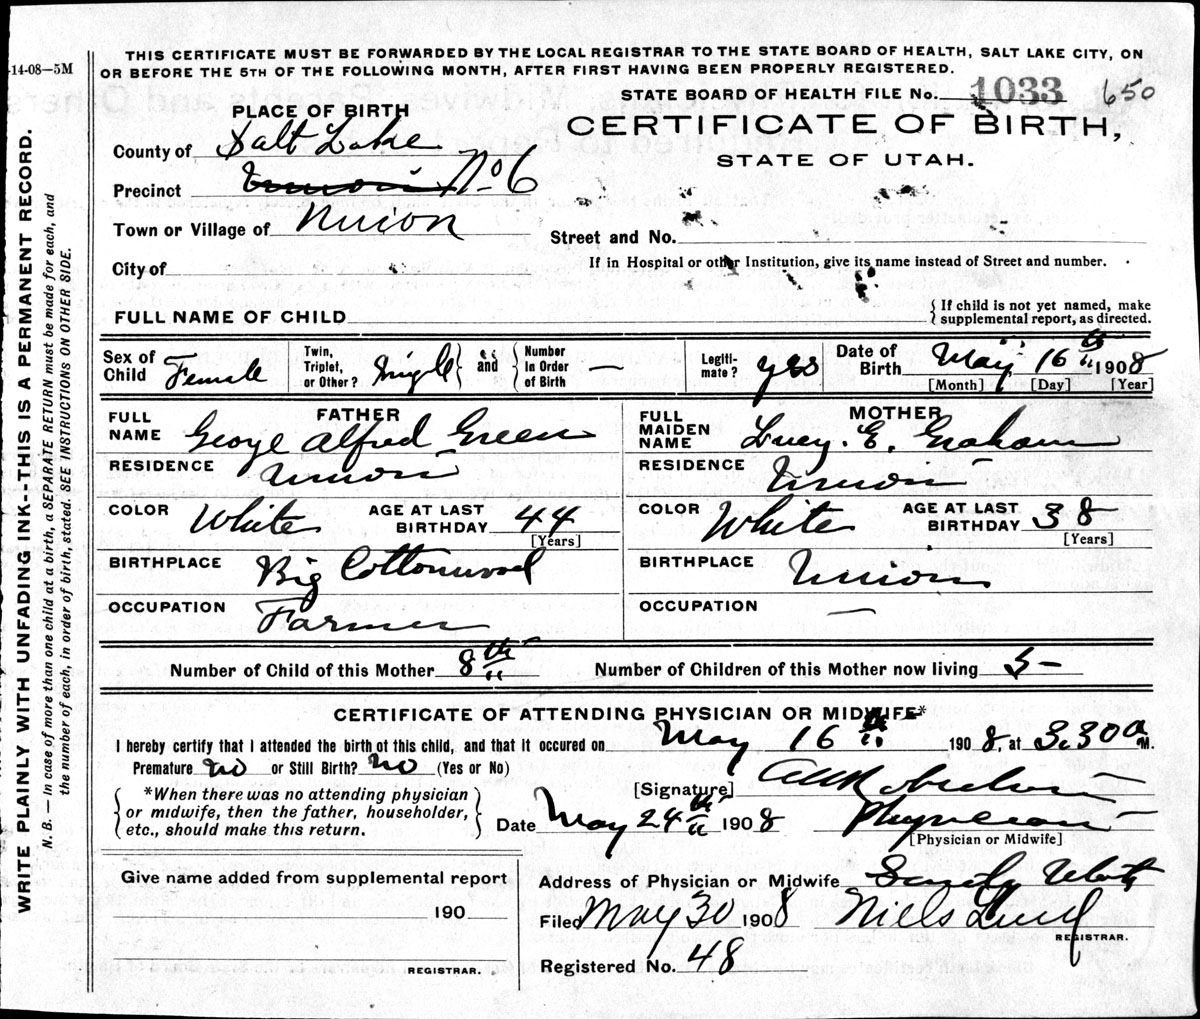 THIS CERTIFICATE MUST BE FORWARDED BY THE LOCAL REGISTRAR TO THE STATE BOARD OF HEALTH, SALT LAKE CITY, ON
OR BEFORE THE 5TH OF THE FOLLOWING MONTH, AFTER FIRST HAVING BEEN PROPERLY REGISTERED.
-14-08—5M
STATE BOARD OF HEALTH FILE No. 1033 650
PLACE OF BIRTH
CERTIFICATE OF BIRTH,
STATE OF UTAH.
County of Salt Lake
Precinct Union No 6
Town or Village of Union
Street and No.
City of
If in Hospital or other Institution, give its name instead of Street and number.
FULL NAME OF CHILD
{If child is not yet named, make
supplemental report, as directed.
Sex of Child Female
Twin, Triplet, or Other? Single
and
Number In Order of Birth —
Legiti-mate? yes
Date of Birth May 16th 1908
[Month] [Day] [Year]
FATHER
FULL NAME George Alfred Green
RESIDENCE Union
COLOR White
AGE AT LAST BIRTHDAY 44
[Years]
BIRTHPLACE Big Cottonwood
OCCUPATION Farmer
MOTHER
FULL MAIDEN NAME Lucy. E. Graham
RESIDENCE Union
COLOR White
AGE AT LAST BIRTHDAY 38
[Years]
BIRTHPLACE Union
OCCUPATION —
Number of Child of this Mother 8th
Number of Children of this Mother now living 5
CERTIFICATE OF ATTENDING PHYSICIAN OR MIDWIFE*
I hereby certify that I attended the birth of this child, and that it occured on May 16th, 1908, at 3.30 a M.
Premature no or Still Birth? no (Yes or No)
{*When there was no attending physician
or midwife, then the father, householder,
etc., should make this return.}
[Signature]
Date May 24th 1908
Physician
[Physician or Midwife]
Give name added from supplemental report
190
REGISTRAR.
Address of Physician or Midwife Sandy Utah
Filed May 30 1908 Niels Lind
REGISTRAR.
Registered No. 48
WRITE PLAINLY WITH UNFADING INK--THIS IS A PERMANENT RECORD.
N. B. — In case of more than one child at a birth, a SEPARATE RETURN must be made for each, and
the number of each, in order of birth, stated. SEE INSTRUCTIONS ON OTHER SIDE.